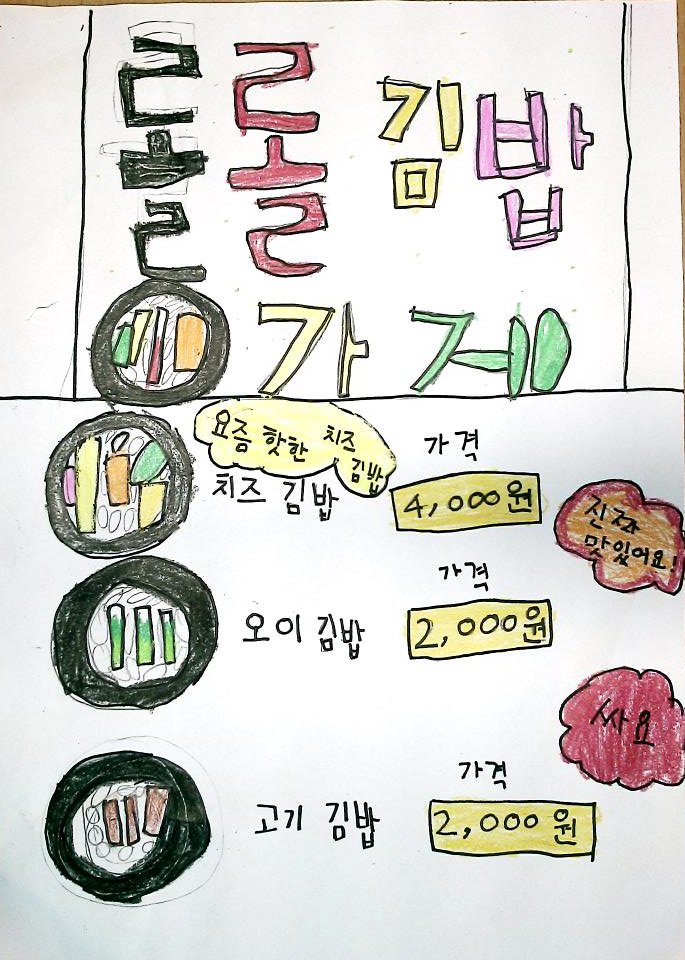 롤롤 김밥
가제
요즘 핫한 치즈
김밥
치즈 김밥
가격
4,000원
진짜
맛있어요!
오이 김밥
가격
2,000원
싸요
고기 김밥
가격
2,000원